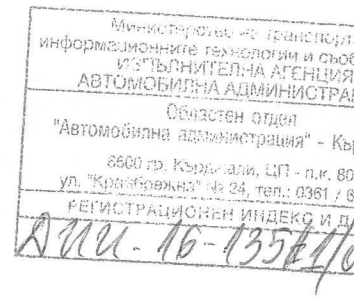 Министерство на транспорт
информационните технологии и съоб
ИЗПЪЛНИТЕЛНА АГЕНЦИЯ
АВТОМОБИЛНА АДМИНИСТРА
Областен отдел
"Автомобилна администрация" - Кър
6600 гр. Кърджали, ЦП - п.к. 80
ул. "Крайбрежна" № 24, тел.: 0361 / 6
РЕГИСТРАЦИОНЕН ИНДЕКС И Д
16-135